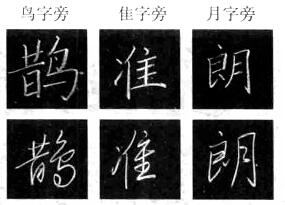 鸟字旁 隹字旁 月字旁
鹊 准 朗
鹊 准 朗